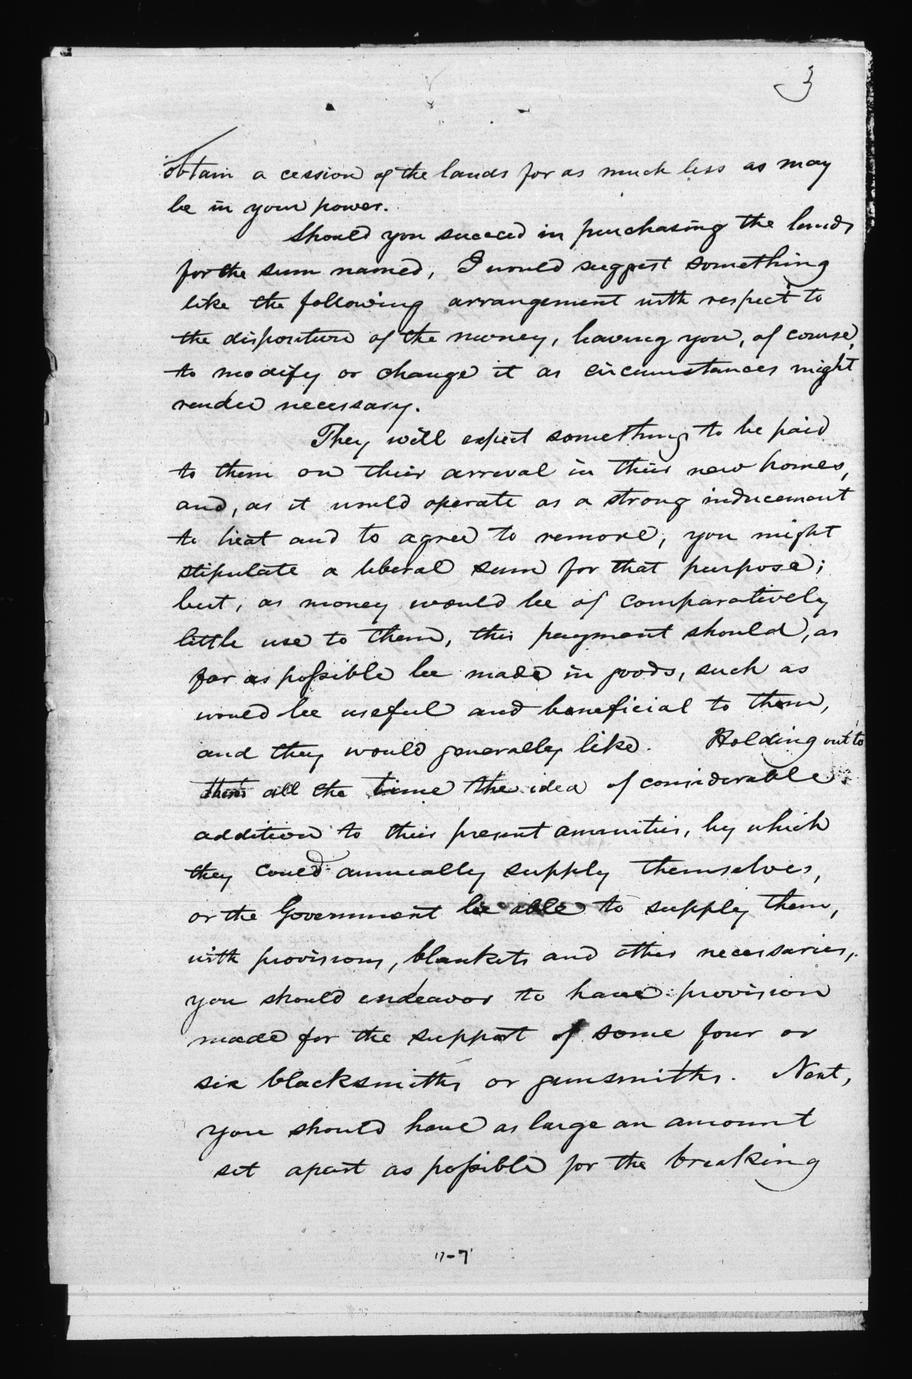 3
obtain a cession of the lands for as much less as may
be in your power.
Should you succeed in purchasing the lands
for the sum named, I would suggest something
like the following arrangement with respect to
the disposition of the money, leaving you, of course,
to modify or change it as circumstances might
render necessary.
They will expect something to be paid
to them on their arrival in their new homes,
and, as it would operate as a strong inducement
to treat and to agree to remove, you might
stipulate a liberal sum for that purpose;
but, as money would be of comparatively
little use to them, this payment should, as
far as possible be made in goods, such as
would be useful and beneficial to them,
and they would generally like. Holding out to
them all the time the idea of considerable
addition to their present annuities, by which
they could annually supply themselves,
or the Government be able to supply them,
with provisions, blankets and other necessaries,
you should endeavor to have provision
made for the support of some four or
six blacksmiths or gunsmiths. Next,
you should have as large an amount
set apart as possible for the breaking
17-7